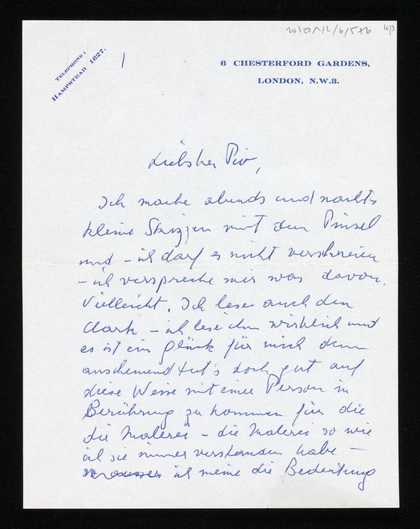 TELEPHONE:
HAMPSTEAD 1827.
6 CHESTERFORD GARDENS,
LONDON, N.W.3.
Liebster Piv,
Ich mache abends und nachts
kleine Skizzen mit dem Pinsel
und – ich darf es nicht verschreien
– ich verspreche mir was davon.
Vielleicht. Ich lese auch den
Clark – ich lese ihn wirklich und
es ist ein Glück für mich denn
anscheinend tut's doch gut auf
diese Weise mit einer Person in
Berührung zu kommen für die
die Malerei – die Malerei so wie
ich sie immer verstanden habe –
ich meine die Bedeutung